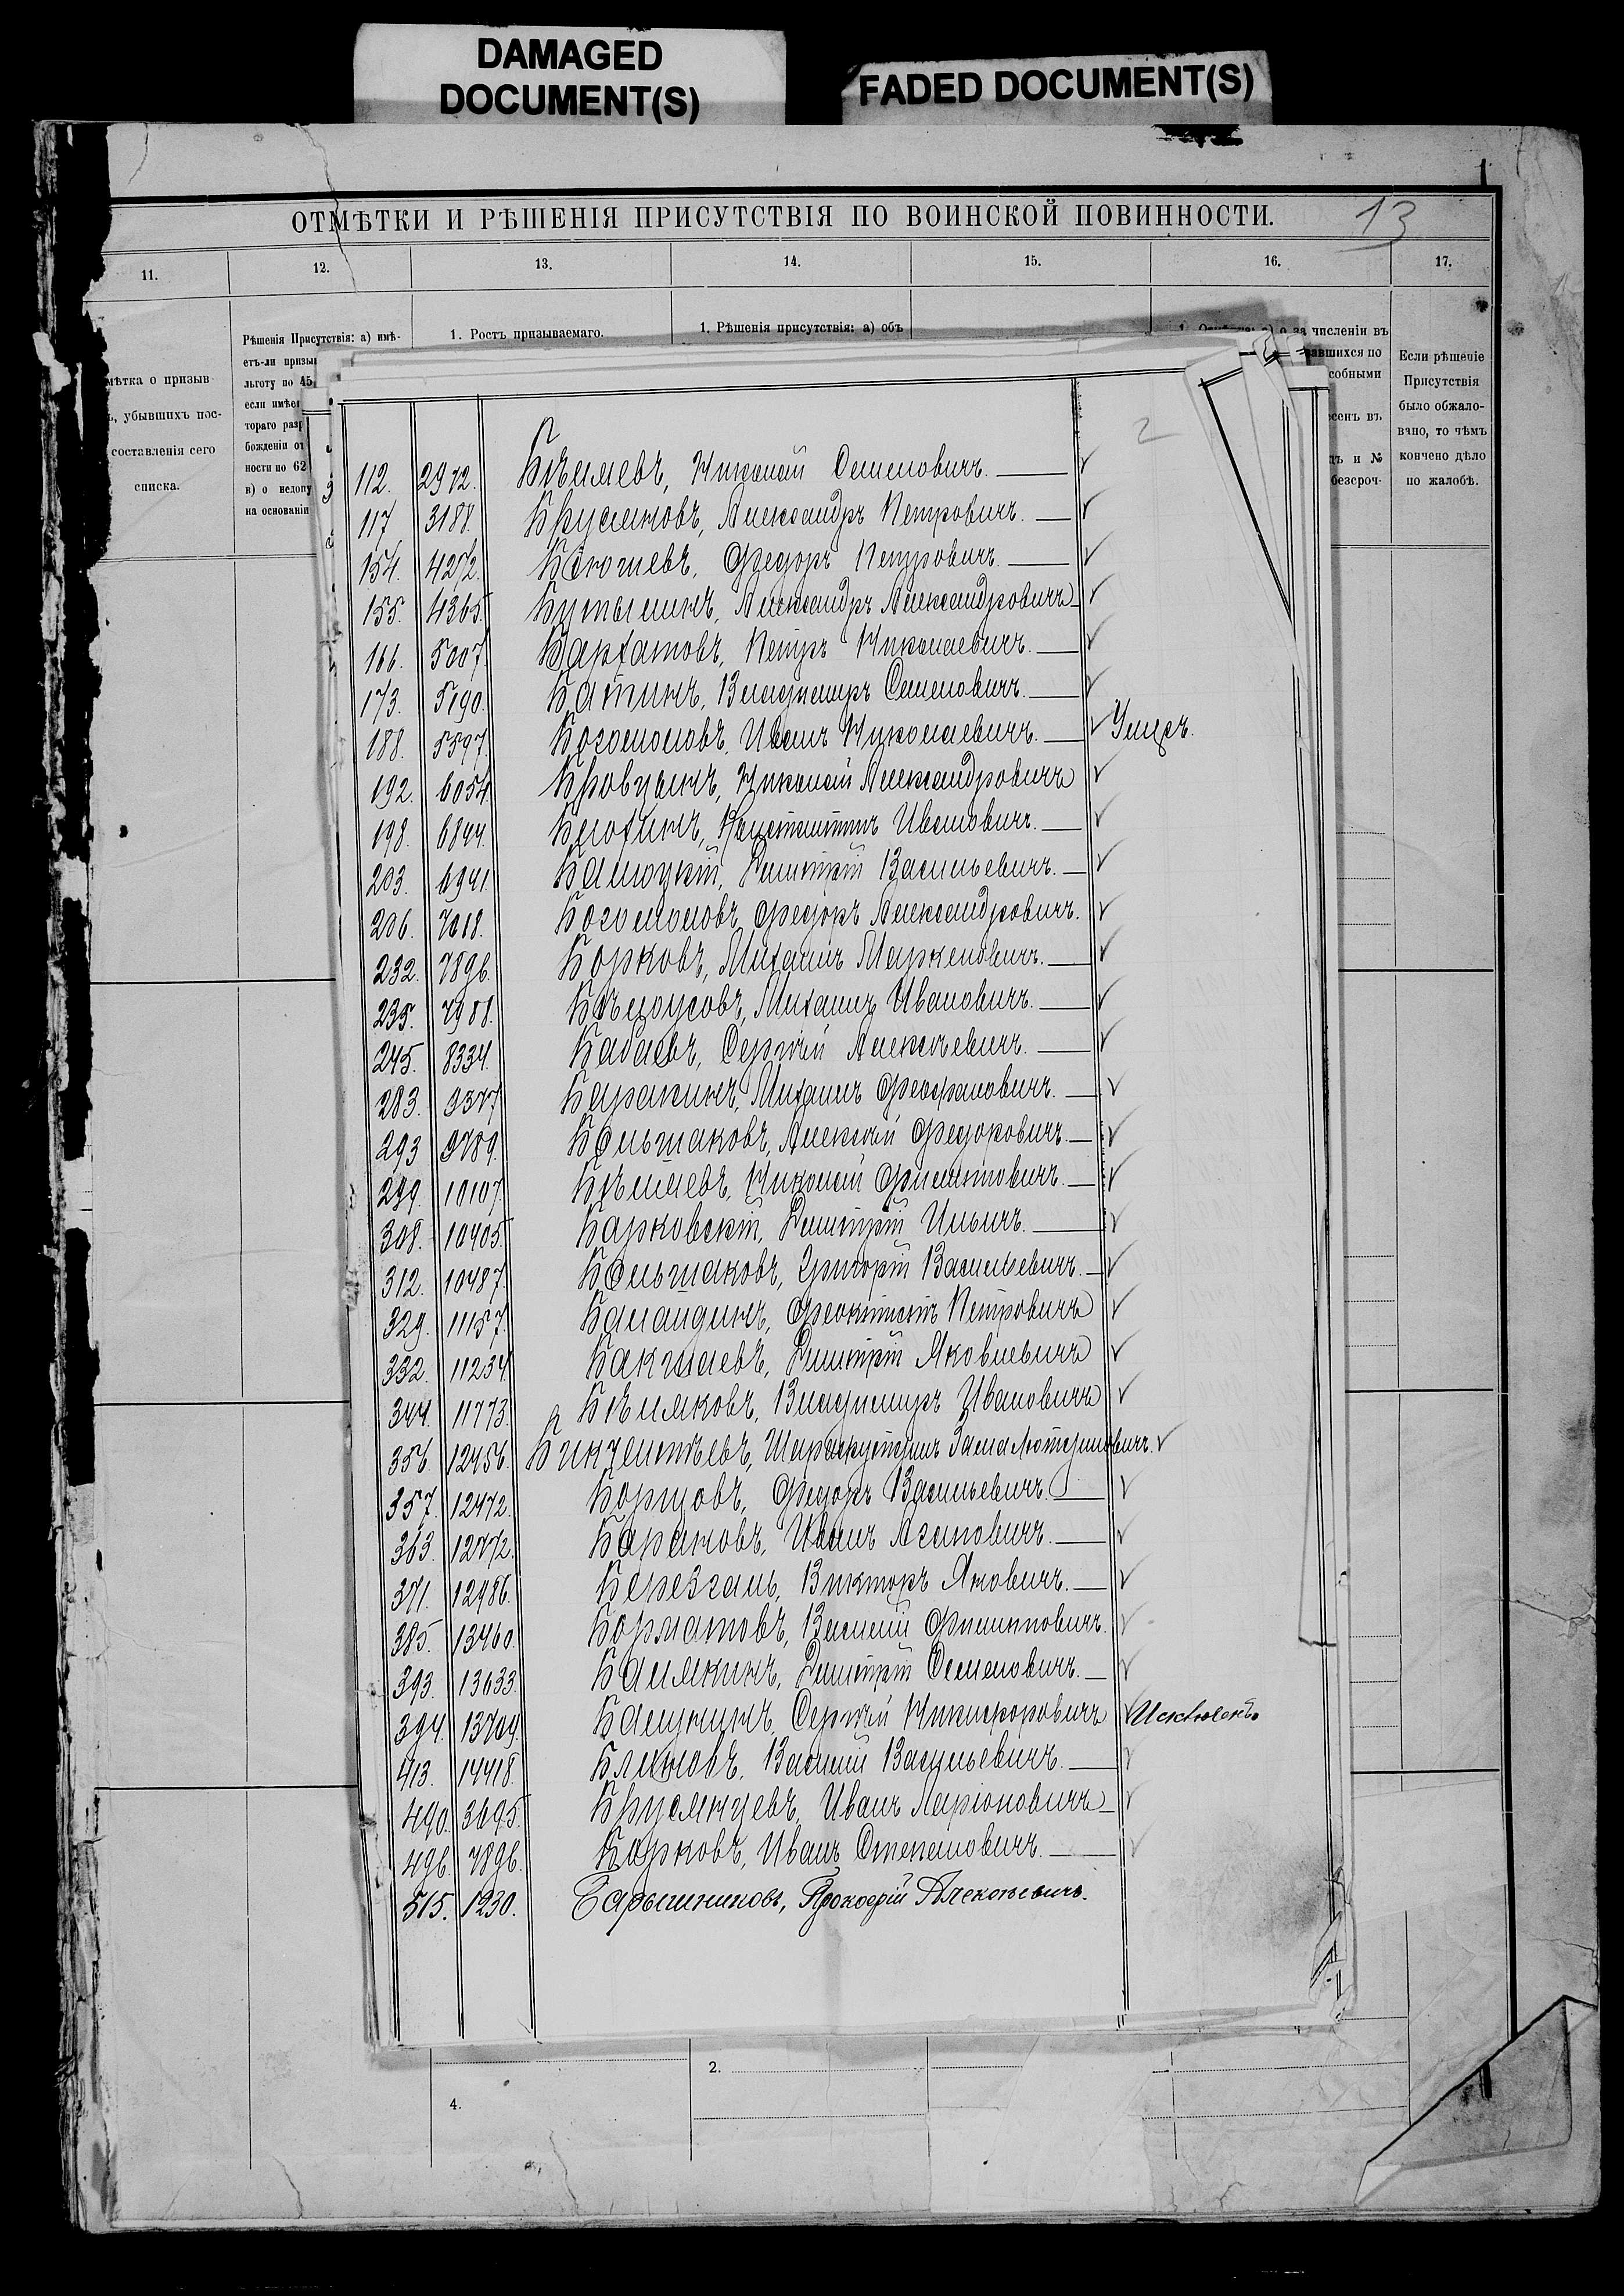 DAMAGED
DOCUMENT(S)
FADED DOCUMENT(S)
ОТМѢТКИ И РѢШЕНІЯ ПРИСУТСТВІЯ ПО ВОИНСКОЙ ПОВИННОСТИ.
13
11. 12. 13. 14. 15. 16. 17.
мѣтка о призыв
убывшихъ пос-
составленія сего
списка.
Рѣшенія Присутствія: а) имѣ-
етъ-ли призы
льготу по 45
если имѣе
тораго раз
божденіи от
ности по 62
в) о недопу
на основаніи
1. Ростъ призываемаго.
1. Рѣшенія присутствія: а) объ
о за численіи въ
авшихся по
собными
сенъ въ
и №
безсроч-
Если рѣшеніе
Присутствія
было обжало-
вано, то чѣмъ
кончено дѣло
по жалобѣ.
2
112. 2972. Бѣляевъ, Николай Семеновичъ.
117 3188. Брусяновъ, Александръ Петровичъ.
154. 4252. Федоръ Петровичъ.
155. 4365. Бутылинъ, Александръ Александровичъ
166. 5007. Бархатовъ, Петръ Николаевичъ.
173. 5190. Батинъ, Владиміръ Семеновичъ.
188. 5597. Богомоловъ, Иванъ Николаевичъ. Умеръ.
192. 6054. Бровцынъ, Николай Александровичъ
198. 6844. Блохинъ, Константинъ Ивановичъ.
203. 6941. Дмитрій Васильевичъ.
206. 7618. Богомоловъ, Федоръ Александровичъ.
232. 7896. Борковъ, Михаилъ Маркеловичъ.
235. 7988. Бѣлоусовъ, Михаилъ Ивановичъ.
245. 8334. Бабаевъ, Сергѣй Алексѣевичъ.
283. 9377 Баранинъ, Михаилъ Феофановичъ.
293 9789. Большаковъ, Алексѣй Федоровичъ.
299. 10107. Бѣляевъ, Николай Филипповичъ.
308. 10405. Барковскій, Дмитрій Ильичъ.
312. 10487. Большаковъ, Григорій Васильевичъ.
329. 11157. Баландинъ, Феоктистъ Петровичъ
332. 11234. Бакшаевъ, Дмитрій Яковлевичъ
344. 11773. Бѣляковъ, Владиміръ Ивановичъ
356. 12456. Бикчентѣевъ,
357. 12472. Борцовъ, Федоръ Васильевичъ.
363. 12772. Барановъ, Иванъ Агаповичъ.
371. 12986. Березгаль, Викторъ Яновичъ.
385. 13460. Борматовъ, Василій Филипповичъ.
393. 13633. Балякинъ, Дмитрій Семеновичъ.
394. 13709. Балунинъ, Сергѣй Никифоровичъ Исключенъ.
413. 14418. Блиновъ, Василій Васильевичъ.
490. 3695. Брусянцевъ, Иванъ Ларіоновичъ
496. 7896. Борковъ, Иванъ Степановичъ.
515. 1230. Барышниковъ, Прокофій Алексѣевичъ.
2.
4.